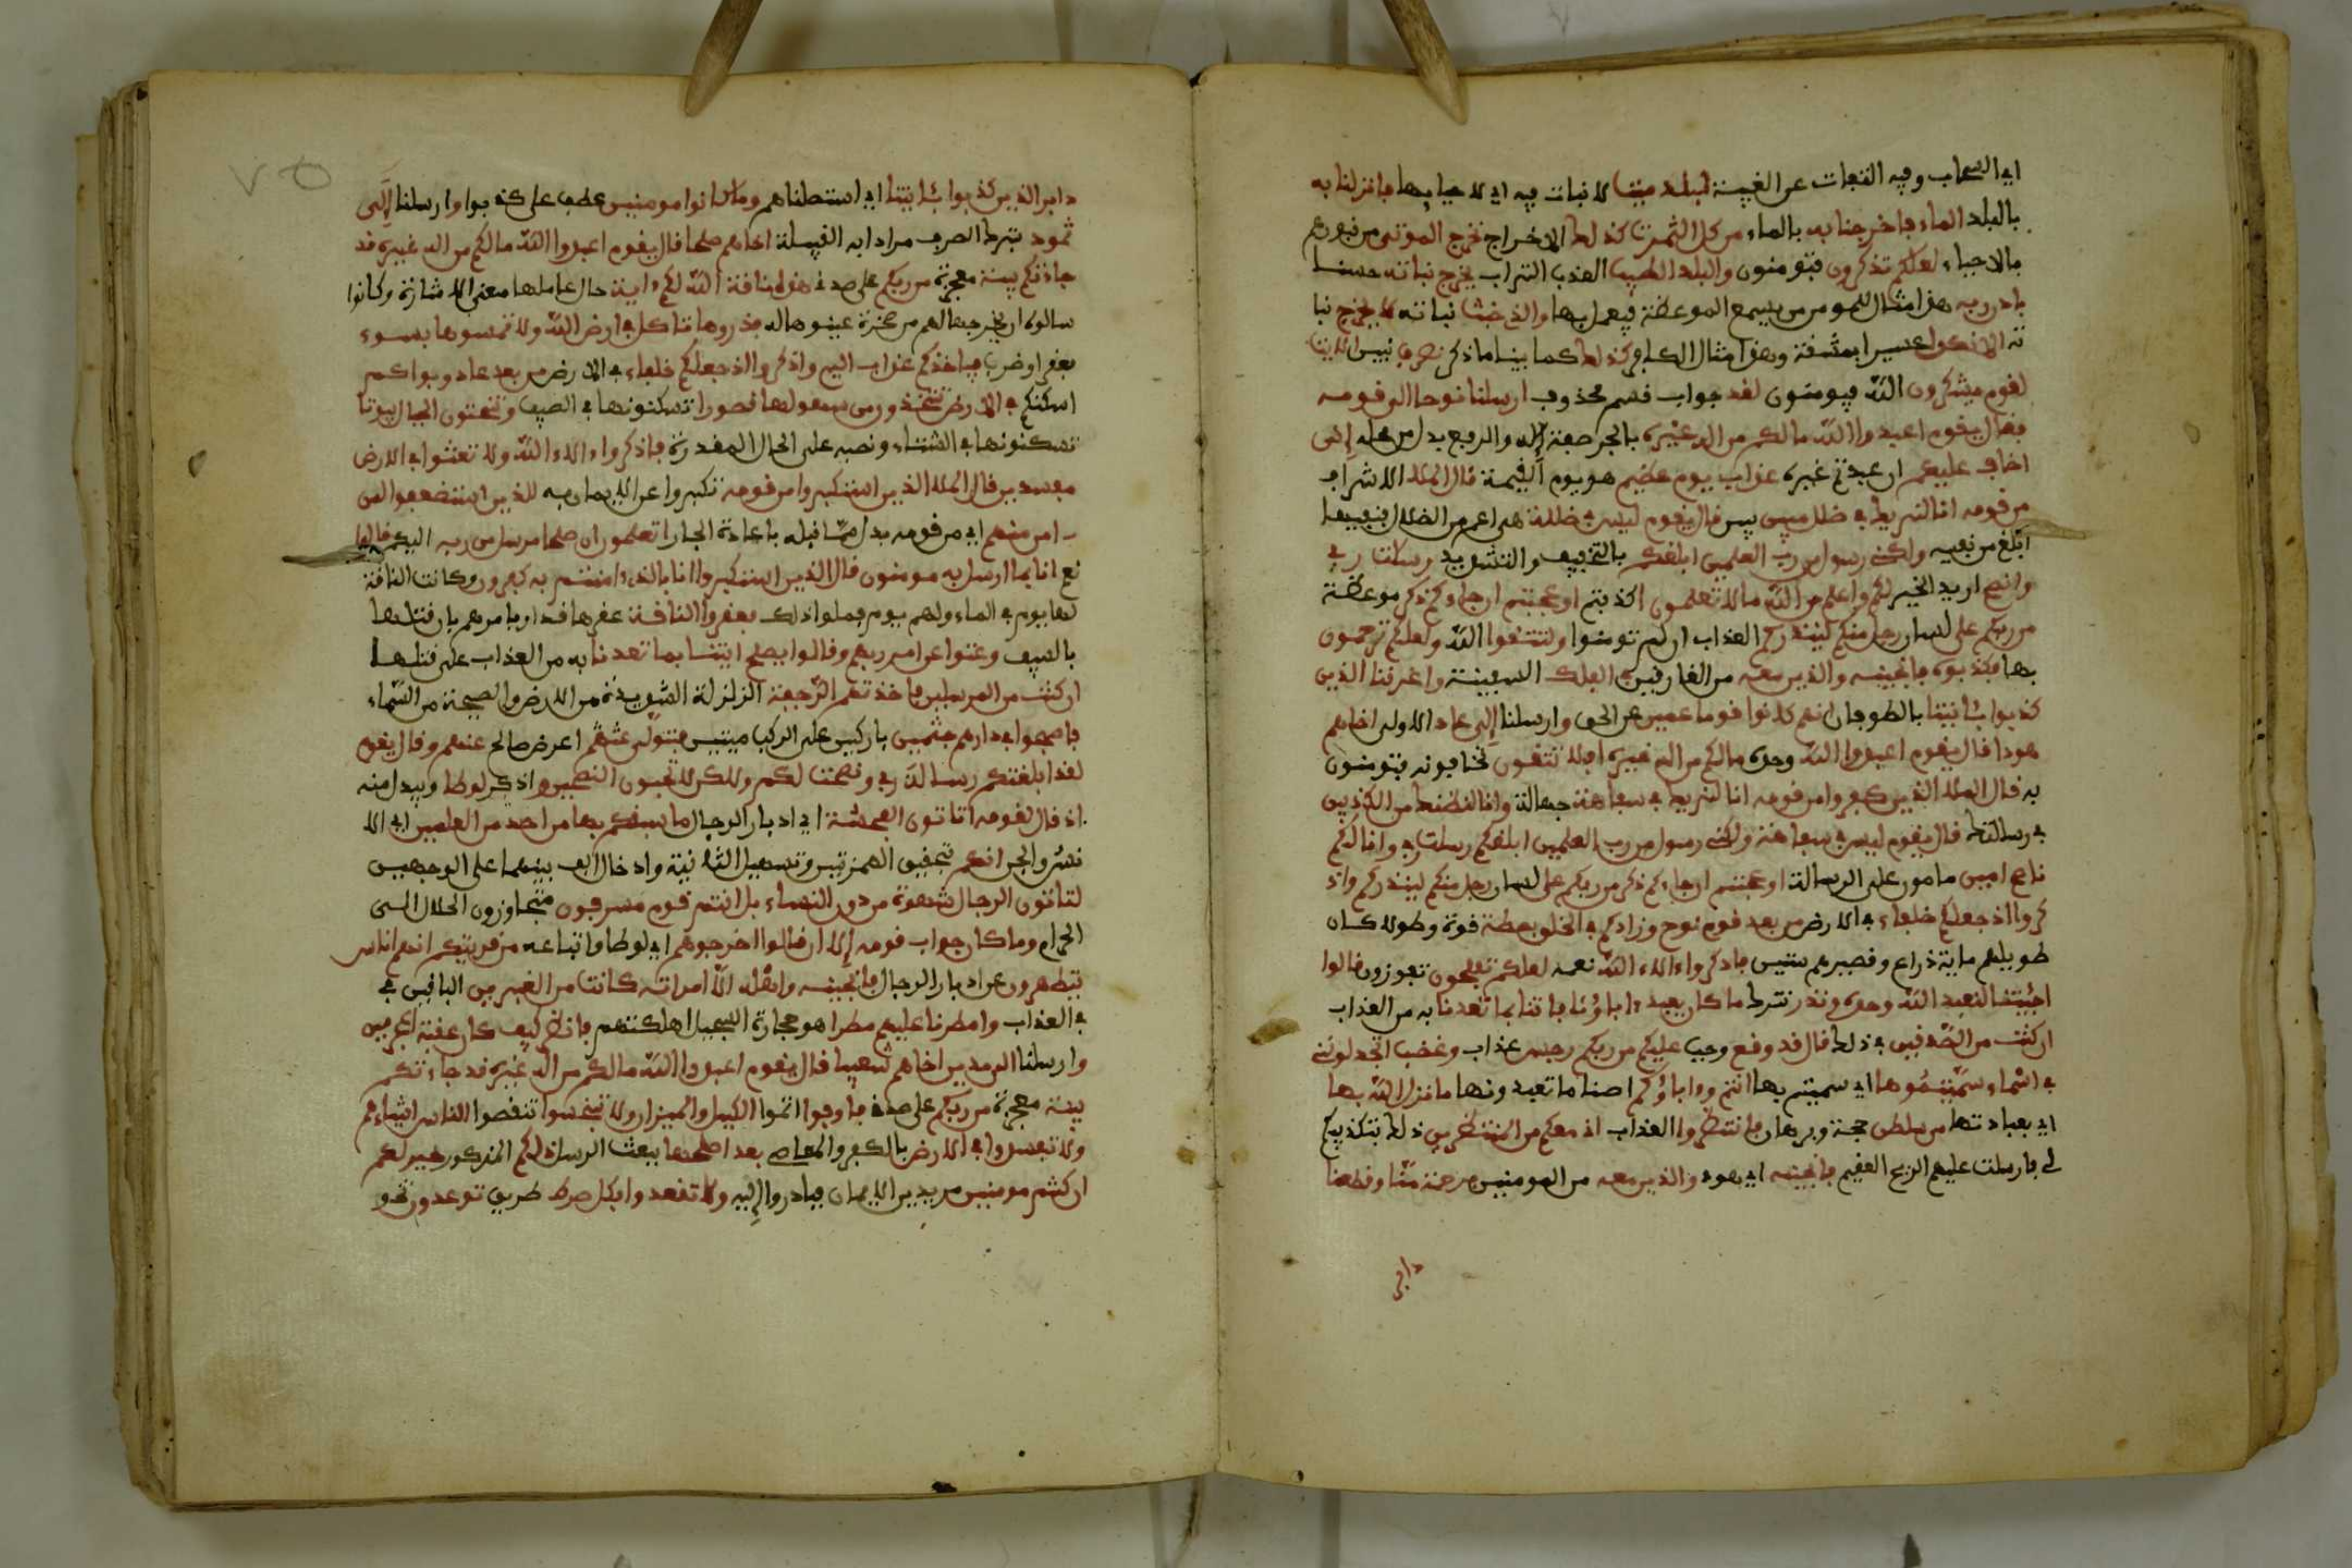 اي السحاب وفيه التفات عن الغيبة لبلد ميت لا نبات فيه اي لاحيايها فانزلنا به
بالبلد الماء فاخرجنا به بالماء من كل الثمرت كذلك الاخراج نخرج الموتى من قبورهم
بالاحياء لعلكم تذكرون فتومنون والبلد الطيب العذب التراب يخرج نباته حسنا
باذن ربه هذا مثال للمومن من يسمع الموعظة فيعمل بها والذي خبث نباته لا يخرج نبا
ته الا نكدا عسيرا بمشقة وهذا مثال الكافر كذلك كما بينا ما ذكر نصرف نبين الايت
لقوم يشكرون الله فيومنون لقد جواب قسم محذوف ارسلنا نوحا الى قومه
فقال يقوم اعبدوا الله مالكم من اله غيره بالجر صفة لاله والرفع بدل من محله إني
اخاف عليكم ان عبدتم غيره عذاب يوم عظيم هو يوم القيمة قال الملا الاشراف
من قومه انا لنريك في ضلل مبين بين قال يقوم ليس بي ضللة هي اعم من الضلال فنفيها
ابلغ من نفيه ولكني رسول من رب العلمين ابلغكم بالتخفيف والتشديد رسلت ربي
وانصح اريد الخير لكم واعلم من الله ما لا تعلمون اكذبتم اوعجبتم ان جاءكم ذكر موعظة
من ربكم على لسان رجل منكم لينذركم العذاب ان لم تومنوا ولتتقوا الله ولعلكم ترحمون
بها فكذبوه فانجينه والذين معه من الغارقين في الفلك السفينة واغرقنا الذين
كذبوا بئايتنا بالطوفان انهم كانوا قوما عمين عن الحق وارسلنا إلى عاد الاولى اخاهم
هودا قال يقوم اعبدوا الله وحدوه مالكم من اله غيره افلا تتقون تخافونه فتومنون
به قال الملا الذين كفروا من قومه انا لنريك في سفاهة جهالة وانا لنظنك من الكذبين
في رسالتك قال يقوم ليس بي سفاهة ولكني رسول من رب العلمين ابلغكم رسلت ربي وانا لكم
ناصح امين مامون على الرسالة اوعجبتم ان جاءكم ذكر من ربكم على لسان رجل منكم لينذركم واذ
كروا اذ جعلكم خلفاء في الارض من بعد قوم نوح وزادكم في الخلق بصطة قوة وطولا كان
طويلهم ماية ذراع وقصيرهم ستين فاذكروا ءالاء الله نعمه لعلكم تفلحون تفوزون قالوا
اجئتنا لنعبد الله وحده ونذر نترك ما كان يعبد ءاباؤنا فاتنا بما تعدنا به من العذاب
ان كنت من الصدقين في ذلك قال قد وقع وجب عليكم من ربكم رجس عذاب وغضب اتجدلونني
في اسماء سميتموها اي سميتم بها انتم وءاباؤكم اصناما تعبدونها ما نزل الله بها
اي بعبادتها من سلطن حجة وبرهان فانتظروا العذاب اني معكم من المنتظرين ذلك بتكذيبكم
لي فارسلت عليهم الريح العقيم فانجينه اي هود والذين معه من المومنين برحمة منا وقطعنا
دابر
دابر الذين كذبوا بئايتنا اي استاصلناهم وما كانوا مومنين عطف على كذبوا وارسلنا إلى
ثمود بترك الصرف مرادا به القبيلة اخاهم صلحا قال يقوم اعبدوا الله مالكم من اله غيره قد
جاءتكم بينة معجزة من ربكم على صدقي هذه ناقة الله لكم ءاية حال عاملها معنى الاشارة وكانوا
سالوه ان يخرجها لهم من صخرة عينوها له فذروها تاكل في ارض الله ولا تمسوها بسوء
بعقر او ضرب فياخذكم عذاب اليم واذكروا اذ جعلكم خلفاء في الارض من بعد عاد وبواكم
اسكنكم في الارض تتخذون من سهولها قصورا تسكنونها في الصيف وتنحتون الجبال بيوتا
تسكنونها في الشتاء ونصبه على الحال المقدرة فاذكروا ءالاء الله ولا تعثوا في الارض
مفسدين قال الملا الذين استكبروا من قومه تكبروا عن الايمان به للذين استضعفوا لمن
ءامن منهم اي من قومه بدل مما قبله باعادة الجار اتعلمون ان صلحا مرسل من ربه اليكم قالوا
نعم انا بما ارسل به مومنون قال الذين استكبروا انا بالذي ءامنتم به كفرون وكانت الناقة
لها يوم في الماء ولهم يوم فملوا ذلك فعقروا الناقة عقرها قدار بامرهم بان قتلها
بالسيف وعتوا عن امر ربهم وقالوا يصلح ايتنا بما تعدنا به من العذاب على قتلها
ان كنت من المرسلين فاخذتهم الرجفة الزلزلة الشديدة من الارض والصيحة من السماء
فاصبحوا في دارهم جثمين باركين على الركب ميتين فتولى عنهم اعرض صالح عنهم وقال يقوم
لقد ابلغتكم رسالة ربي ونصحت لكم ولكن لا تحبون النصحين واذكر لوطا ويبدل منه
اذ قال لقومه اتاتون الفحشة اي ادبار الرجال ما سبقكم بها من احد من العلمين اي الا
نس والجن انكم بتحقيق الهمزتين وتسهيل الثانية وادخال الف بينهما على الوجهين
لتاتون الرجال شهوة من دون النساء بل انتم قوم مسرفون متجاوزون الحلال الى
الحرام وما كان جواب قومه إلا ان قالوا اخرجوهم اي لوطا واتباعه من قريتكم انهم اناس
يتطهرون عن ادبار الرجال فانجينه واهله الا امراته كانت من الغبرين الباقين في
في العذاب وامطرنا عليهم مطرا هو حجارة السجيل اهلكتهم فانظر كيف كان عقبة المجرمين
وارسلنا الى مدين اخاهم شعيبا قال يقوم اعبدوا الله مالكم من اله غيره قد جاءتكم
بينة معجزة من ربكم على صدقي فاوفوا اتموا الكيل والميزان ولا تبخسوا تنقصوا الناس اشياءهم
ولا تفسدوا في الارض بالكفر والمعاصي بعد اصلحها ببعث الرسل ذلكم المذكور خير لكم
ان كنتم مومنين مريدين الايمان فبادروا إليه ولا تقعدوا بكل صرط طريق توعدون تخو